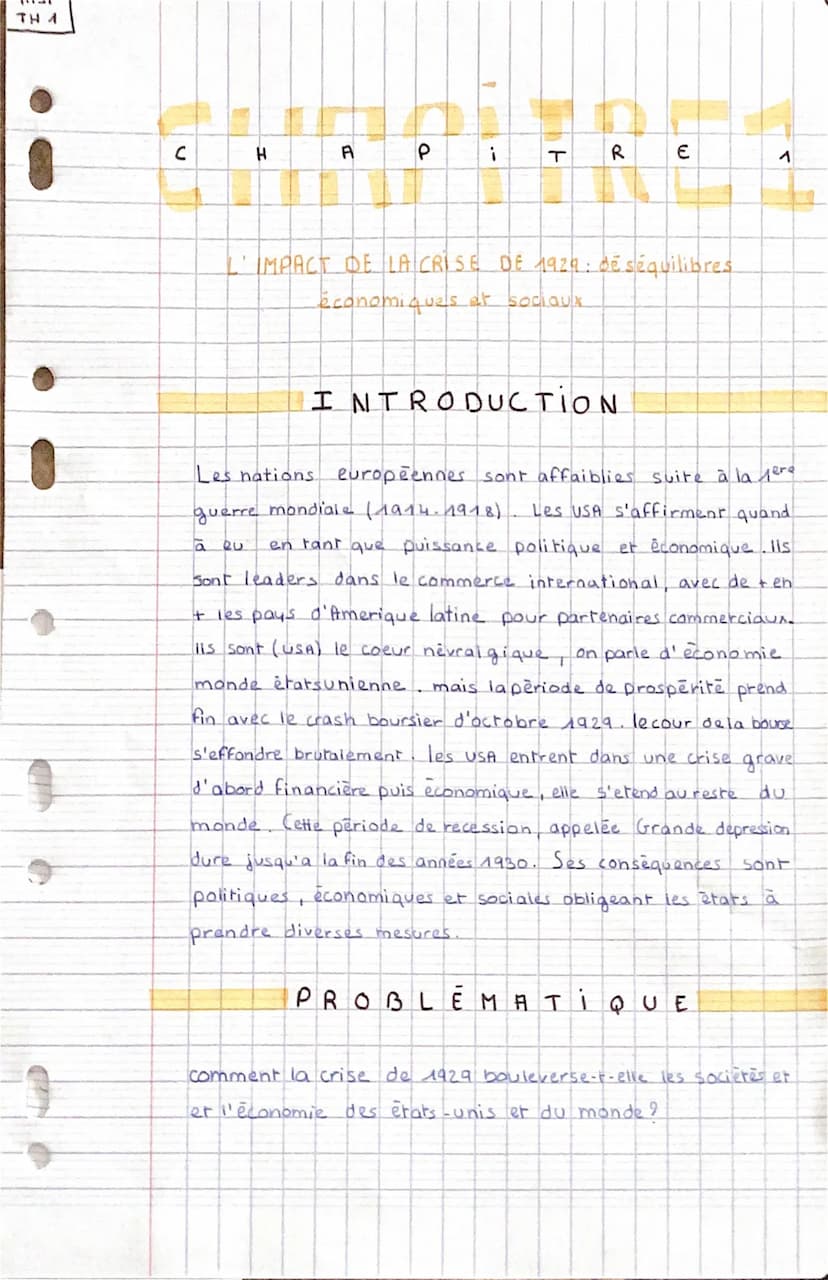 TH 1
CHAPiTRE 1
L'IMPACT DE LA CRISE DE 1929: déséquilibres
économiques et sociaux
INTRODUCTiON
Les nations européennes sont affaiblies suite à la 1ere
guerre mondiale (1914-1918). Les USA s'affirment quand
à eu en tant que puissance politique et économique. Ils
sont leaders dans le commerce international, avec de + en
+ les pays d'Amerique latine pour partenaires commerciaux.
Ils sont (USA) le coeur névralgique, on parle d'économie
monde étatsunienne. mais la période de prospérité prend
fin avec le crash boursier d'octobre 1929. le cour de la bourse
s'effondre brutalement. les USA entrent dans une crise grave
d'abord financière puis économique, elle s'etend au reste du
monde. Cette période de recession, appelée Grande depression
dure jusqu'a la fin des années 1930. Ses conséquences sont
politiques, économiques et sociales obligeant les états à
prendre diverses mesures.
PROBLÉMATiQUE
comment la crise de 1929 bouleverse-t-elle les sociétés et
et l'économie des états-unis et du monde?